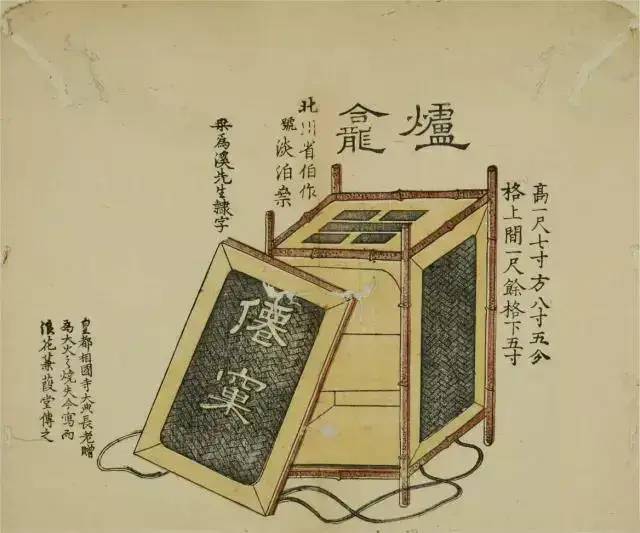 爐龕
高一尺七寸方八寸五分
格上間一尺餘格下五寸
北川省伯作
號淡泊
爲溪先生隷字
僊窠
皇都相國寺大典長老贈
為大火之燒失今寫而
浪花蒹葭堂傳之